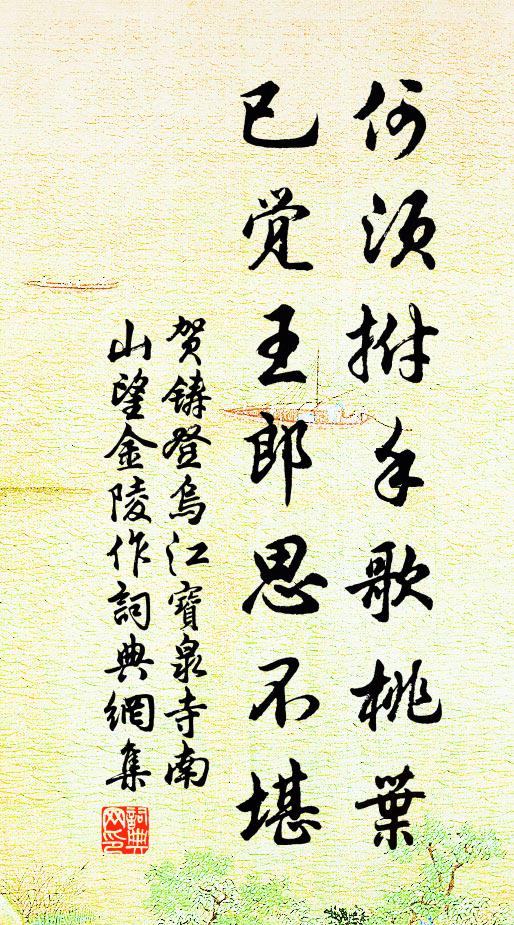 何须拊手歌桃葉
已觉王郎思不堪
贺铸登烏江寶泉寺南
山望金陵作詞典網集
詞典网印